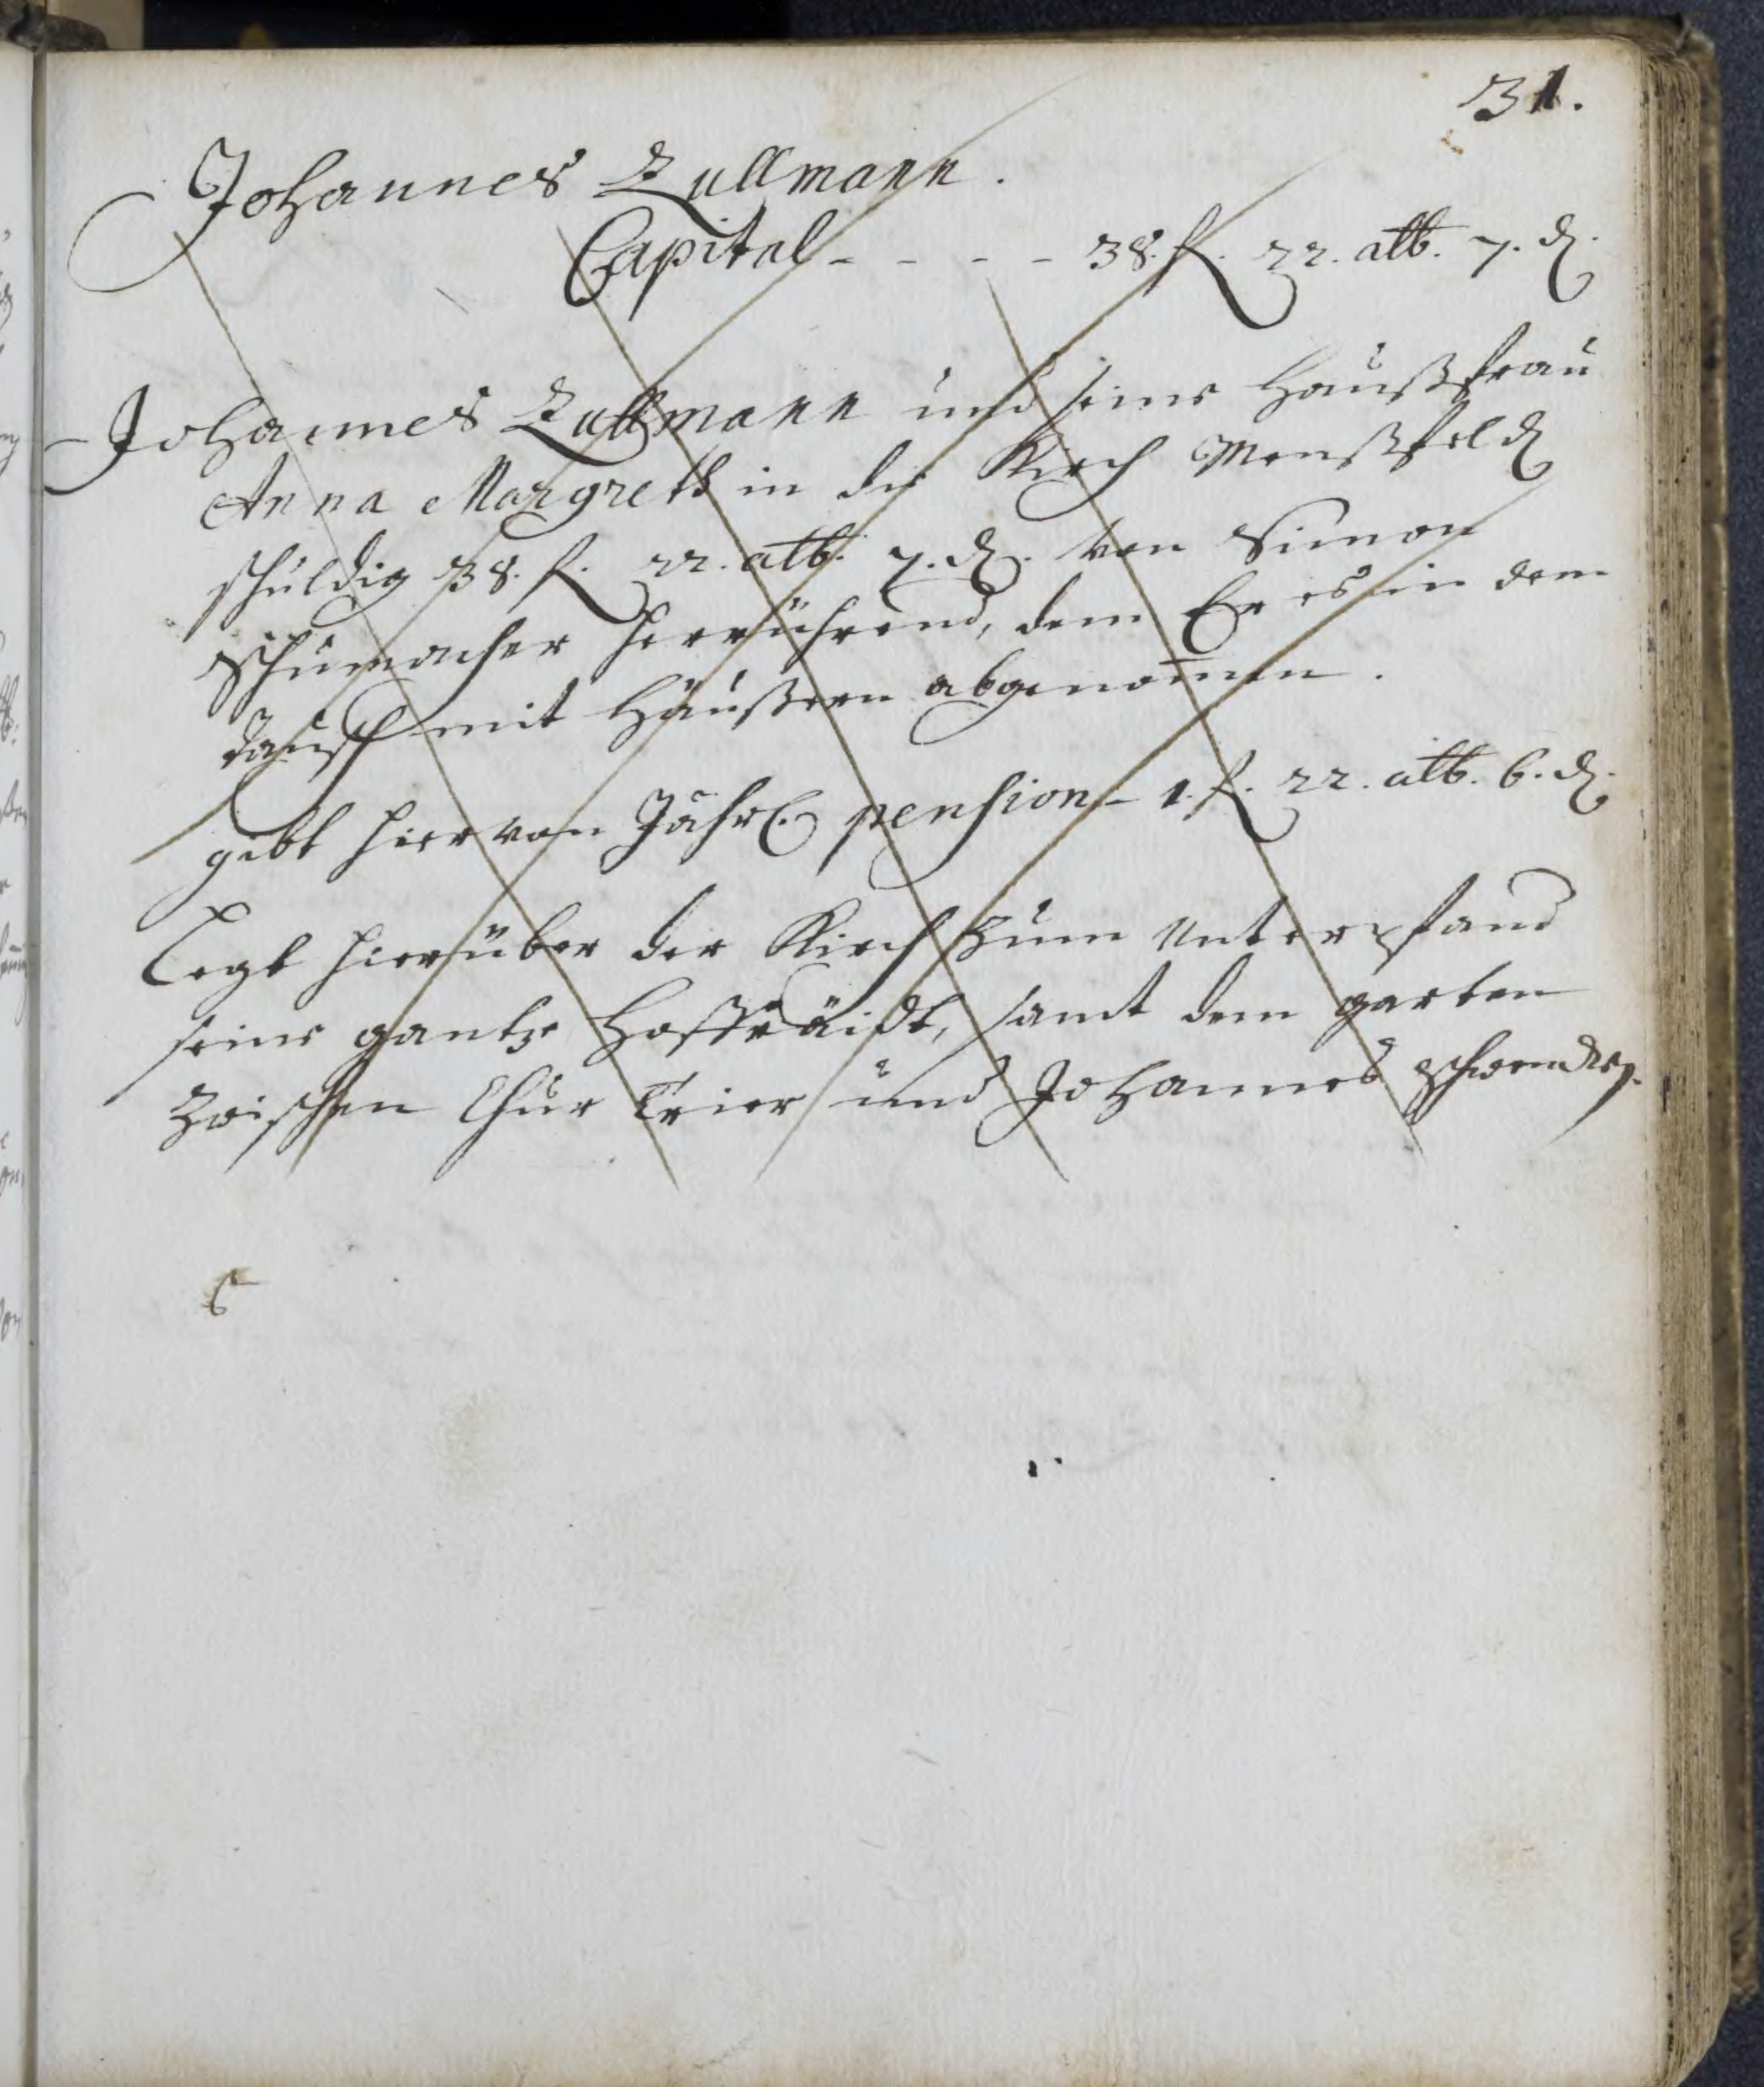 31.
Johannes Zullmann.
Capital - - - - 38. f. 22. alb. 7. d.
Johannes Zullmann und seine Haußfrau
Anna Margreth in die Kirch Menßfeld
schuldig 38. f. 22. alb. 7. d. von Simon
Schumacher herrührend, dem Er es in dem
Tausch mit Häußern abgenomen.
gibt hiervon Jährl. pension - 1. f. 22. alb. 6. d.
Legt hierüber der Kirch zum Unterpfand
seine gantze Hoffräidt, samt dem garten
Zwischen Chur Trier und Johannes